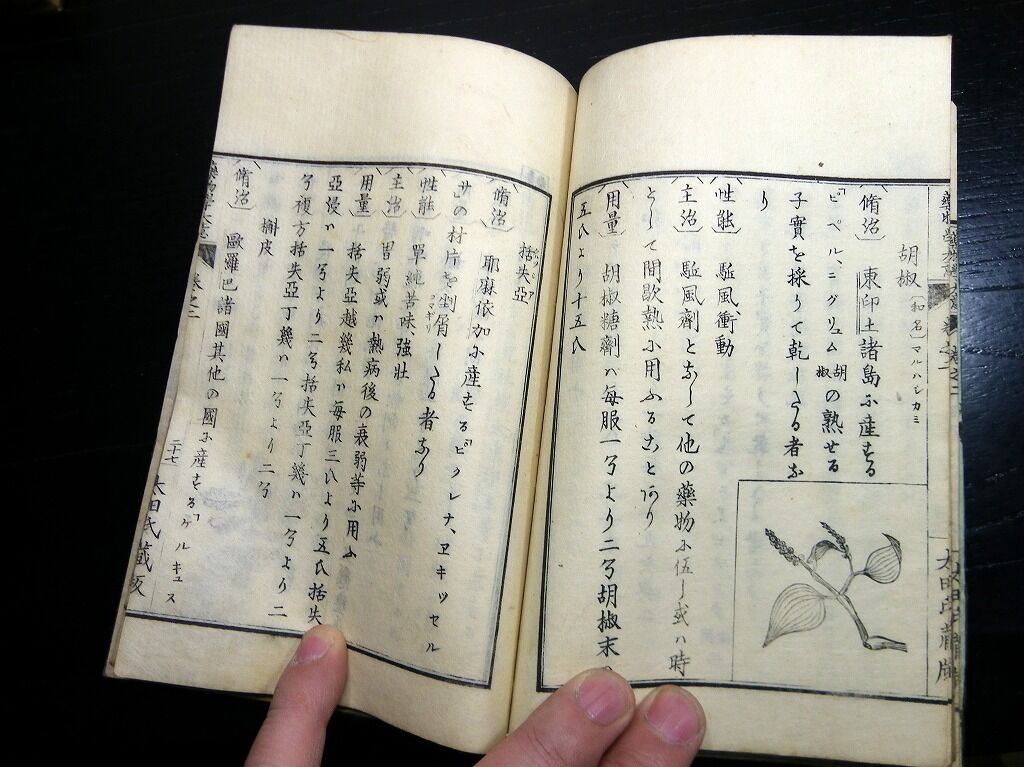 胡椒 (和名)マルハシカミ
脩治 東印土諸島ニ産する
「ピペル、ニグリュム 胡椒 の熟せる
子實を採りて乾したる者な
り
性能 駈風衝動
主治 駈風劑となして他の藥物ニ伍し或ハ時
として間歇熱ニ用ふることあり
用量 胡椒糖劑ハ毎服一兮より二兮胡椒末
五氏より十五氏
括失亞
脩治 耶麻依加ニ産する「ピクレナ、ヱキツセル
サ」の材片を剉屑したる者なり
コマギリ
性能 單純苦味、強壯
主治 胃弱或ハ熱病後の衰弱等ニ用ふ
用量 括失亞越幾私ハ毎服三氏より五氏括失
亞浸ハ一兮より二兮括失亞丁幾ハ一兮より二
兮複方括失亞丁幾ハ一兮より二兮
槲皮
脩治 歐羅巴諸國其他の國ニ産する「ゲルキュス
卷之二
二十七
太田氏藏版